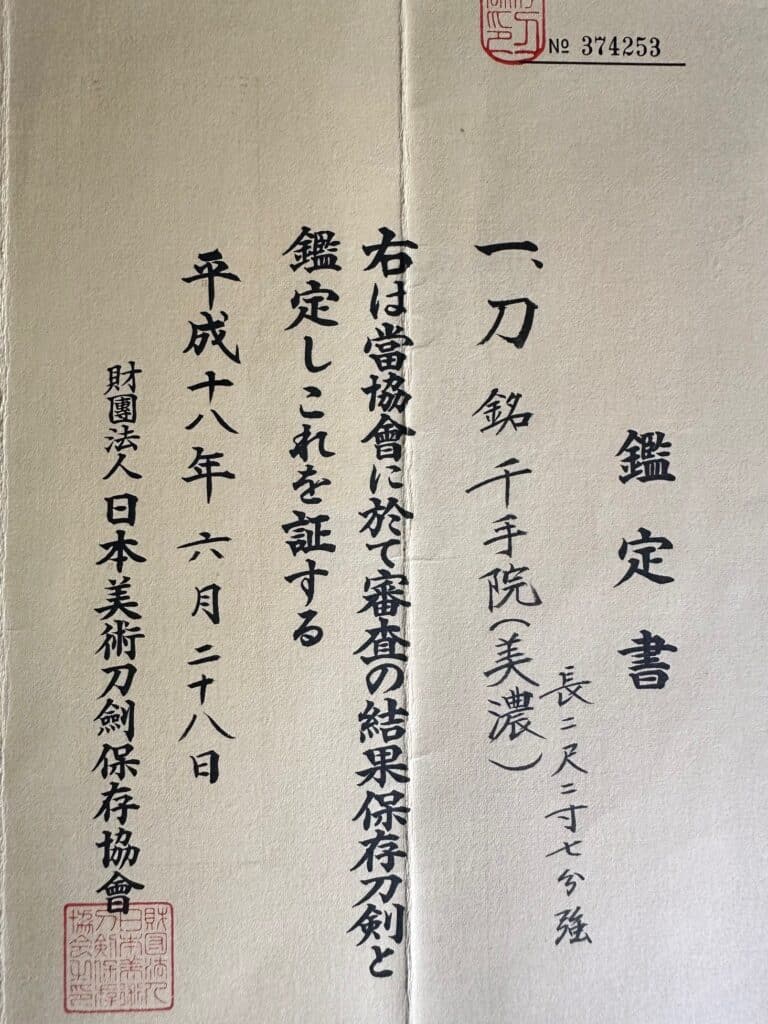 № 374253
鑑定書
一、刀 銘 千手院(美濃)
長二尺二寸七分強
右は當協會に於て審査の結果保存刀剣と
鑑定しこれを証する
平成十八年 六月 二十八日
財團法人 日本美術刀劍保存協會